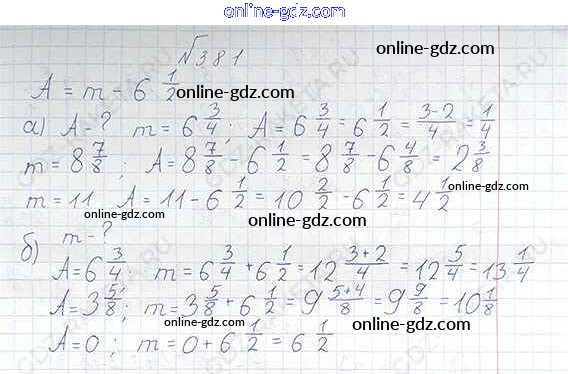 www.online-gdz.com
№381
online-gdz.com
A = m - 6 1/2 online-gdz.com
а) A - ? m = 6 3/4; A = 6 3/4 = 6 1/2 = (3-2)/4 = 1/4
m = 8 7/8; A = 8 7/8 - 6 1/2 = 8 7/8 - 6 4/8 = 2 3/8
m = 11 A = 11 - 6 1/2 = 10 2/2 - 6 1/2 = 4 1/2
online-gdz.com online-gdz.com
б) m - ? online-gdz.com
A = 6 3/4 m = 6 3/4 + 6 1/2 = 12 (3+2)/4 = 12 5/4 = 13 1/4
online-gdz.com online-gdz.com
A = 3 5/8; m = 3 5/8 + 6 1/2 = 9 (5+4)/8 = 9 9/8 = 10 1/8
online-gdz.com online-gdz.com
A = 0; m = 0 + 6 1/2 = 6 1/2
online-gdz.com